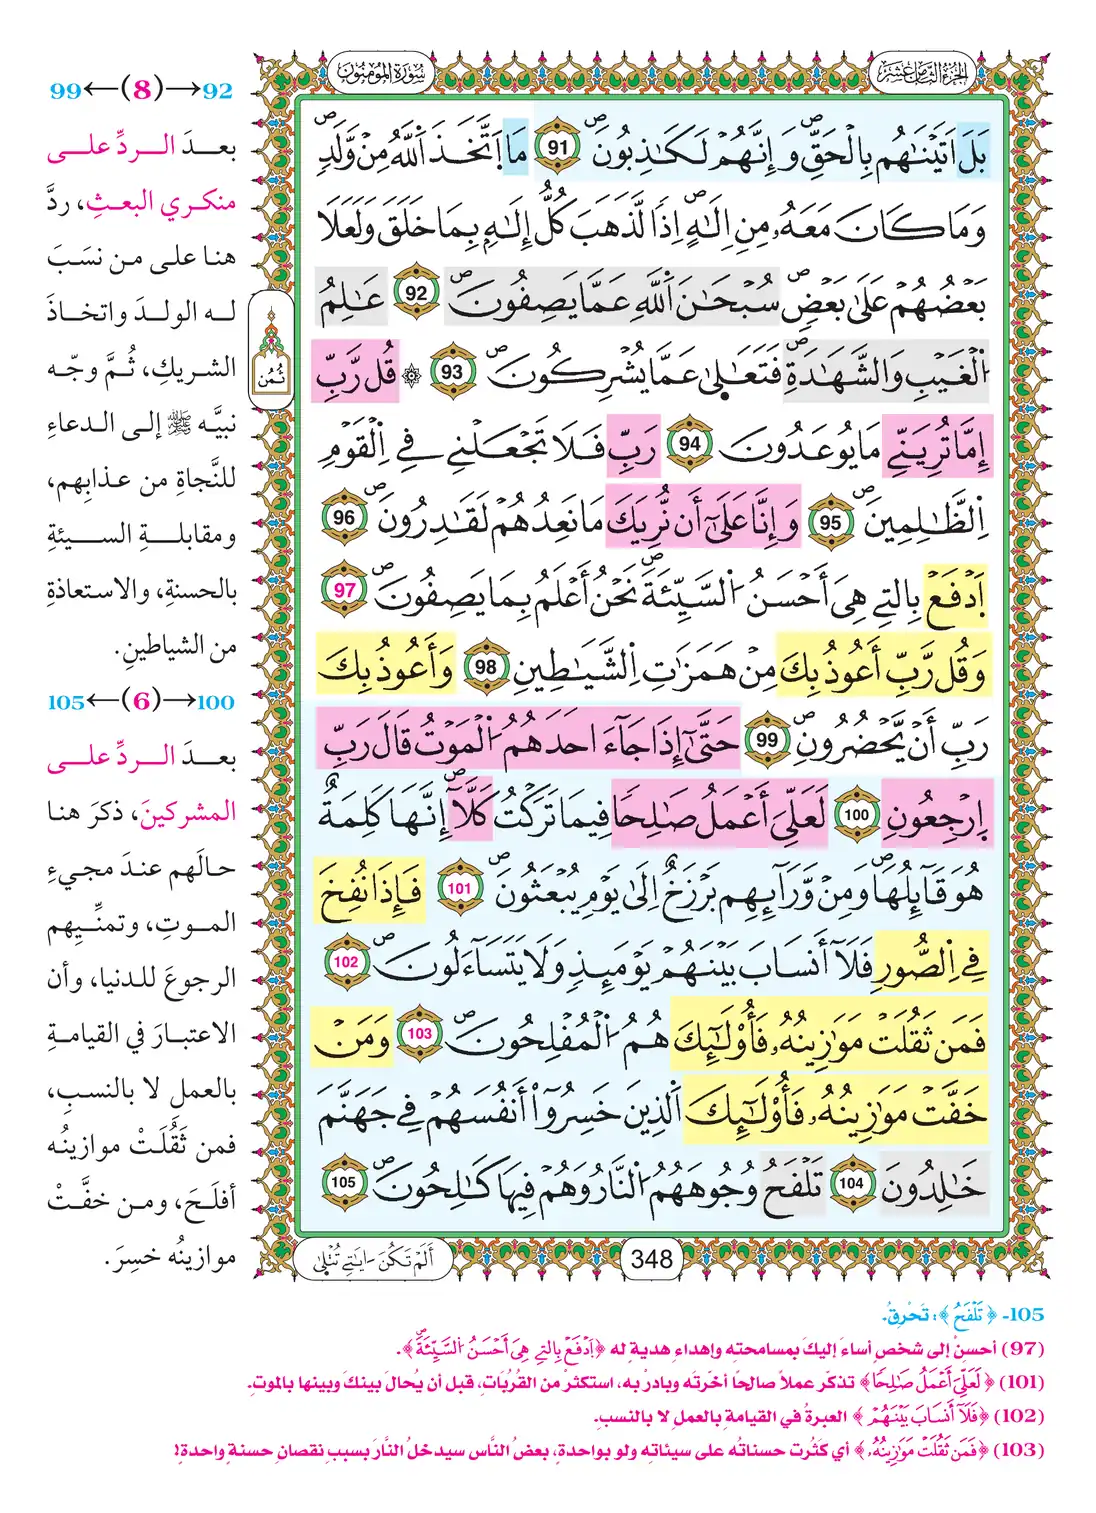 الجزء الثامن عشر
سورة المومنون
بَلَ اَتَيْنَٰهُم بِالْحَقِّۖ وَإِنَّهُمْ لَكَٰذِبُونَۖ 91 مَا اَ۪تَّخَذَ اَللَّهُ مِنْ وَّلَدٖۖ
وَمَا كَانَ مَعَهُۥ مِنِ اِلَٰهٍۖ اِذاٗ لَّذَهَبَ كُلُّ إِلَٰهِۢ بِمَا خَلَقَ وَلَعَلَا
بَعْضُهُمْ عَلَىٰ بَعْضٖۖ سُبْحَٰنَ اَللَّهِ عَمَّا يَصِفُونَۖ 92 عَٰلِمُ
اُ۬لْغَيْبِ وَالشَّهَٰدَةِۖ فَتَعَٰلَىٰ عَمَّا يُشْرِكُونَۖ 93 ۞ قُل رَّبِّ
إِمَّا تُرِيَنِّے مَا يُوعَدُونَۖ 94 رَبِّ فَلَا تَجْعَلْنِے فِے اِ۬لْقَوْمِ
اِ۬لظَّٰلِمِينَۖ 95 وَإِنَّا عَلَىٰٓ أَن نُّرِيَكَ مَا نَعِدُهُمْ لَقَٰدِرُونَۖ 96
اَ۪دْفَعْ بِالتِے هِيَ أَحْسَنُ اُ۬لسَّيِّئَةَۖ نَحْنُ أَعْلَمُ بِمَا يَصِفُونَۖ 97
وَقُل رَّبِّ أَعُوذُ بِكَ مِنْ هَمَزَٰتِ اِ۬لشَّيَٰطِينِ 98 وَأَعُوذُ بِكَ
رَبِّ أَنْ يَّحْضُرُونِۖ 99 حَتَّىٰٓ إِذَا جَآءَ احَدَهُمُ اُ۬لْمَوْتُ قَالَ رَبِّ
اِ۪رْجِعُونِ 100 لَعَلِّيَ أَعْمَلُ صَٰلِحاٗ فِيمَا تَرَكْتُۖ كَلَّآۖ إِنَّهَا كَلِمَةٌ
هُوَ قَآئِلُهَاۖ وَمِنْ وَّرَآئِهِم بَرْزَخٌ اِلَىٰ يَوْمِ يُبْعَثُونَۖ 101 فَإِذَا نُفِخَ
فِے اِ۬لصُّورِ فَلَآ أَنسَابَ بَيْنَهُمْ يَوْمَئِذٖ وَلَا يَتَسَآءَلُونَۖ 102
فَمَن ثَقُلَتْ مَوَٰزِينُهُۥ فَأُوْلَٰٓئِكَ هُمُ اُ۬لْمُفْلِحُونَۖ 103 وَمَنْ
خَفَّتْ مَوَٰزِينُهُۥ فَأُوْلَٰٓئِكَ اَ۬لذِينَ خَسِرُوٓاْ أَنفُسَهُمْ فِے جَهَنَّمَ
خَٰلِدُونَ 104 تَلْفَحُ وُجُوهَهُمُ اُ۬لنَّارُ وَهُمْ فِيهَا كَٰلِحُونَۖ 105
ثُمُن
348
أَلَمْ تَكُنَ ـايَٰتِے تُتْلَىٰ
92→(8)←99
بعدَ الردِّ على
منكري البعثِ، ردَّ
هنا على من نسَبَ
له الولدَ واتخاذَ
الشريكِ، ثُمَّ وجّه
نبيَّه ﷺ إلى الدعاءِ
للنَّجاةِ من عذابِهم،
ومقابلةِ السيئةِ
بالحسنةِ، والاستعاذةِ
من الشياطينِ.
100→(6)←105
بعدَ الردِّ على
المشركينَ، ذكرَ هنا
حالَهم عندَ مجيءِ
الموتِ، وتمنِّيهم
الرجوعَ للدنيا، وأن
الاعتبارَ في القيامةِ
بالعملِ لا بالنسبِ،
فمن ثَقُلَتْ موازينُه
أفلَحَ، ومن خفَّتْ
موازينُه خسِرَ.
105- ﴿تَلْفَحُ﴾: تَحْرِقُ.
(97) أحسِنْ إلى شخصٍ أساءَ إليكَ بمسامحتِه وإهداءِ هديةٍ له ﴿اِدْفَعْ بِالتِے هِيَ أَحْسَنُ اُ۬لسَّيِّئَةَۖ﴾.
(101) ﴿لَعَلِّيَ أَعْمَلُ صَٰلِحاٗ﴾ تذكّر عملاً صالحًا أخّرتَه وبادرْ به، استكثرْ من القُرُبَاتِ، قبل أن يُحالَ بينكَ وبينها بالموتِ.
(102) ﴿فَلَآ أَنسَابَ بَيْنَهُمْ﴾ العبرةُ في القيامةِ بالعملِ لا بالنسبِ.
(103) ﴿فَمَن ثَقُلَتْ مَوَٰزِينُهُۥ﴾ أي كَثُرت حسناتُه على سيئاتِه ولو بواحدةٍ، بعضُ النَّاسِ سيدخلُ النَّارَ بسببِ نقصانِ حسنةٍ واحدةٍ!